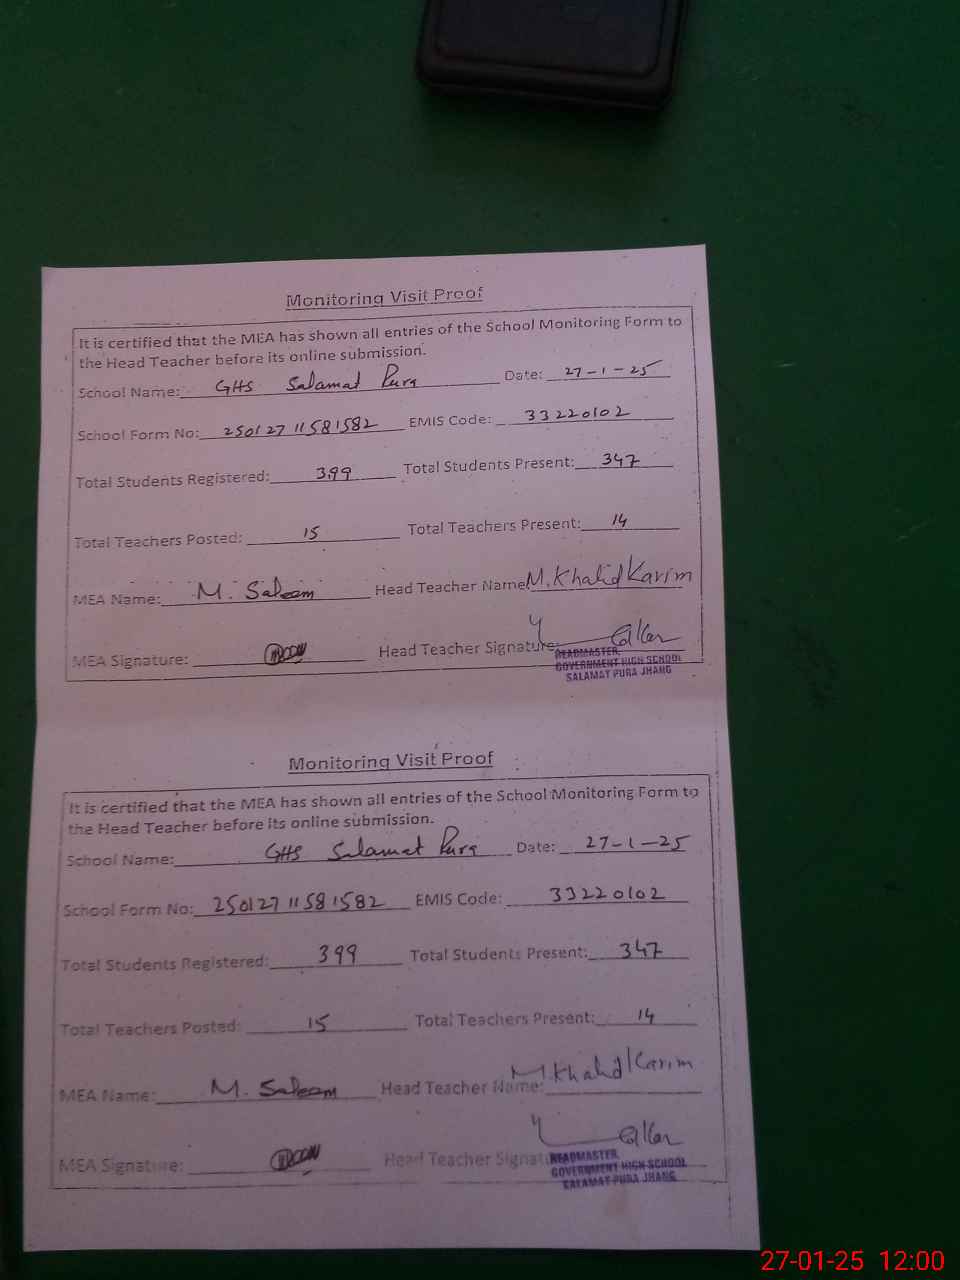 Monitoring Visit Proof
It is certified that the MEA has shown all entries of the School Monitoring Form to
the Head Teacher before its online submission.
School Name: GHS Salamat Pura Date: 27-1-25
School Form No: 250127 11581582 EMIS Code: 33220102
Total Students Registered: 399 Total Students Present: 347
Total Teachers Posted: 15 Total Teachers Present: 14
MEA Name: M. Saleem Head Teacher Name: M. Khalid Karim
MEA Signature: Head Teacher Signature:
HEADMASTER,
GOVERNMENT HIGH SCHOOL
SALAMAT PURA JHANG
Monitoring Visit Proof
It is certified that the MEA has shown all entries of the School Monitoring Form to
the Head Teacher before its online submission.
School Name: GHS Salamat Pura Date: 27-1-25
School Form No: 250127 11581582 EMIS Code: 33220102
Total Students Registered: 399 Total Students Present: 347
Total Teachers Posted: 15 Total Teachers Present: 14
MEA Name: M. Saleem Head Teacher Name: M. Khalid Karim
MEA Signature: Head Teacher Signatu
HEADMASTER,
GOVERNMENT HIGH SCHOOL
SALAMAT PURA JHANG
27-01-25 12:00